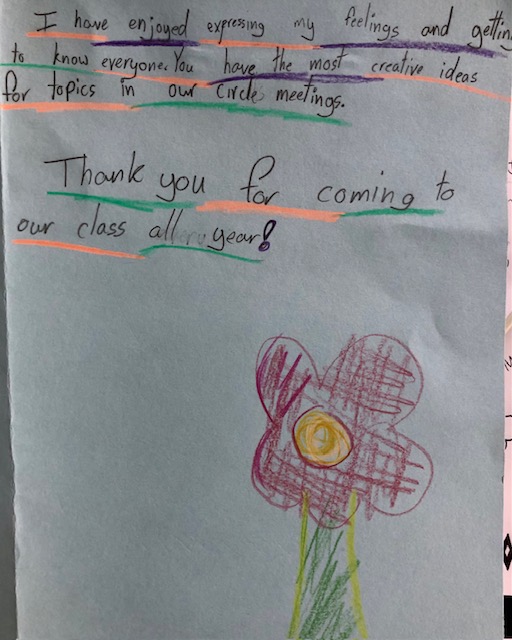 I have enjoyed expressing my feelings and gettin
to know everyone. You have the most creative ideas
for topics in our Circle meetings.
Thank you for coming to
our class all year!